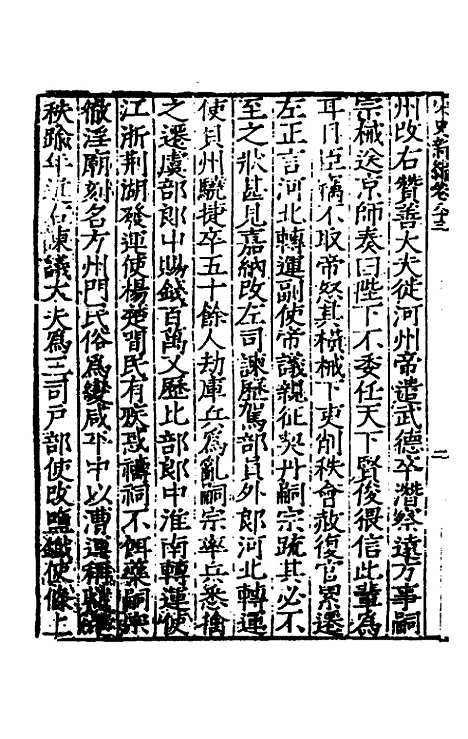 宋史新編卷八十三
二
州改右贊善大夫徙河州帝遣武德卒潛察遠方事嗣
宗械送京師奏曰陛下不委任天下賢俊猥信此輩為
耳目臣竊不取帝怒其橫械下吏削秩會赦復官累遷
左正言河北轉運副使帝議親征契丹嗣宗疏其必不
至之狀甚見嘉納改左司諫歷駕部員外郎河北轉運
使貝州驍捷卒五十餘人劫庫兵為亂嗣宗率兵悉擒
之遷虞部郎中賜錢百萬又歷比部郎中淮南轉運使
江浙荊湖發運使楊楚間民有疾惑禱祠不餌藥嗣宗
徹淫廟刻名方州門民俗為變咸平中以漕運稱職
秩踰年進右諫議大夫為三司戶部使改鹽鐵使條上